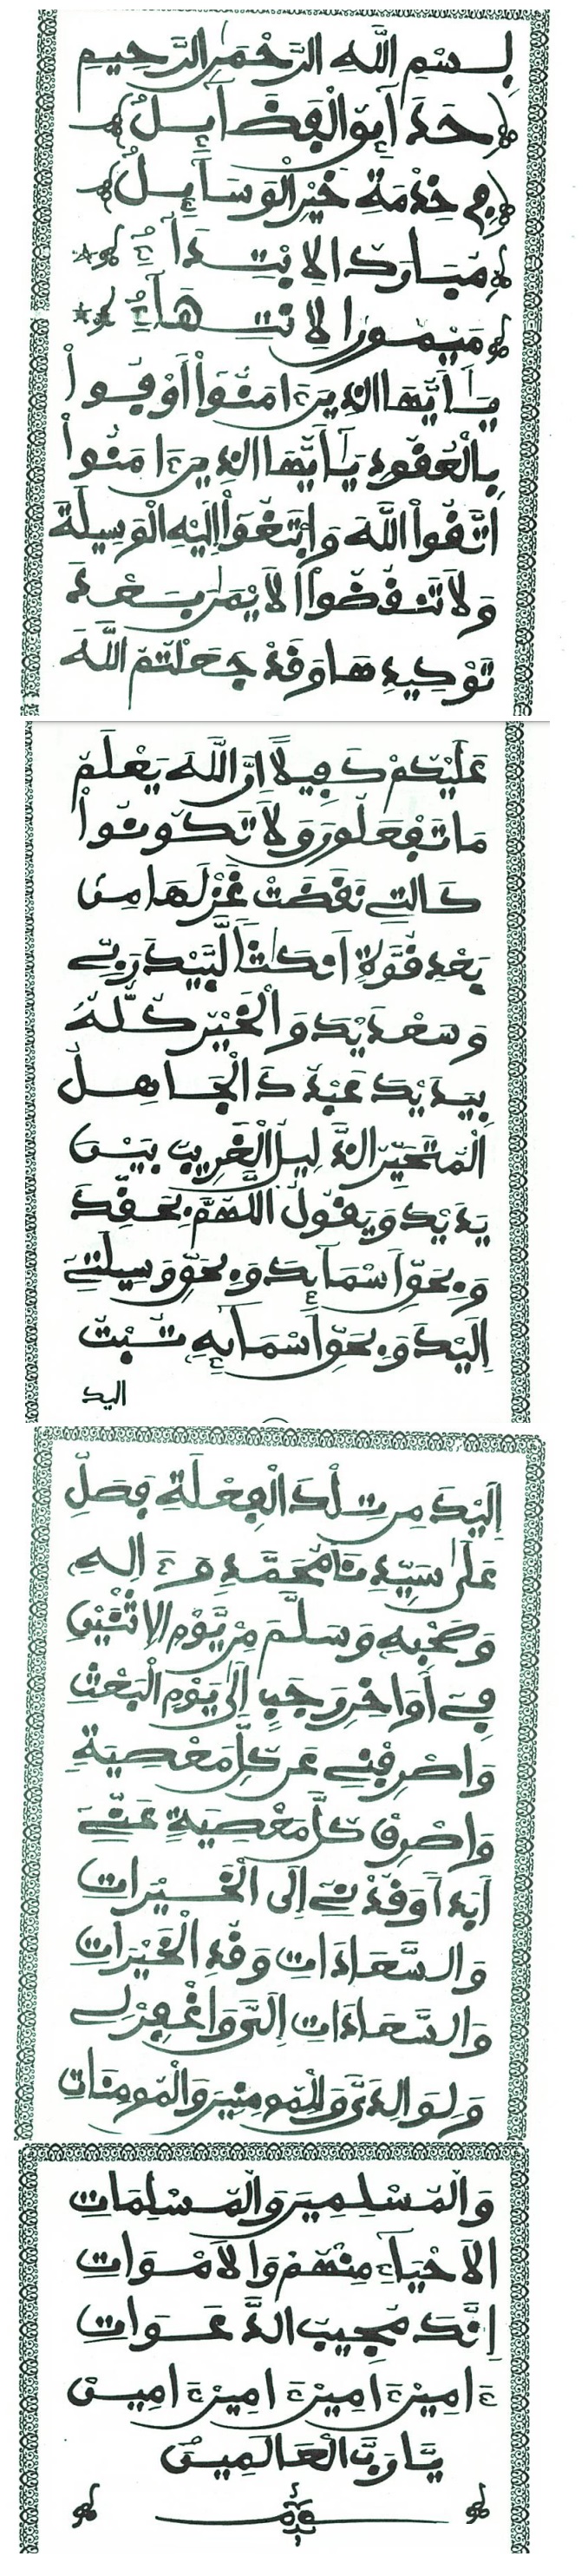 بِسْمِ اللَّهِ الرَّحْمَنِ الرَّحِيمِ
حَدَآئِقُ الْفَضَآئِلْ
فِي خِدْمَةِ خَيْرِ الْوَسَآئِلْ
مُبَارَكُ الِابْتِدَآءْ
مَيْمُونُ الِانْتِهَآءْ
يَٰأَيُّهَا الَّذِينَ ءَامَنُوٓاْ أَوْفُواْ
بِالْعُقُودِ يَٰأَيُّهَا الَّذِينَ ءَامَنُواْ
اتَّقُواْ اللَّهَ وَابْتَغُوٓاْ إِلَيْهِ الْوَسِيلَةَ
وَلَا تَنقُضُواْ الْأَيْمَٰنَ بَعْدَ
تَوْكِيدِهَا وَقَدْ جَعَلْتُمُ اللَّهَ
عَلَيْكُمْ كَفِيلًا إِنَّ اللَّهَ يَعْلَمُ
مَا تَفْعَلُونَ وَلَا تَكُونُواْ
كَالَّتِي نَقَضَتْ غَزْلَهَا مِن
بَعْدِ قُوَّةٍ أَنكَٰثًا لَّبَّيْكَ رَبِّي
وَسَعْدَيْكَ وَالْخَيْرُ كُلُّهُ
بِيَدَيْكَ عَبْدُكَ الْجَاهِلُ
الْمُتَحَيِّرُ الذَّلِيلُ الْغَرِيبُ بَيْنَ
يَدَيْكَ وَيَقُولُ اللَّهُمَّ بِحَقِّكَ
وَبِحَقِّ أَسْمَآئِكَ وَبِحَقِّ وَسِيلَتِي
إِلَيْكَ وَبِحَقِّ أَسْمَآئِهِ تُبْتُ
اليك
إِلَيْكَ مِن تِلْكَ الْفِعْلَةِ فَصَلِّ
عَلَى سَيِّدِنَا مُحَمَّدٍ وَءَالِهِ
وَصَحْبِهِ وَسَلِّمْ مِن يَّوْمِ الِاثْنَيْنِ
فِي أَوَاخِرِ رَجَبٍ إِلَى يَوْمِ الْبَعْثِ
وَاصْرِفْنِي عَن كُلِّ مَعْصِيَةٍ
وَاصْرِفْ كُلَّ مَعْصِيَةٍ عَنِّي
أَبَدًا وَقُدْنِي إِلَى الْخَيْرَاتِ
وَالسَّعَادَاتِ وَقُدِ الْخَيْرَاتِ
وَالسَّعَادَاتِ إِلَيَّ وَاغْفِرْ لِي
وَلِوَالِدَيَّ وَلِلْمُومِنِينَ وَالْمُومِنَاتِ
وَالْمُسْلِمِينَ وَالْمُسْلِمَاتِ
الْأَحْيَآءِ مِنْهُمْ وَالْأَمْوَاتِ
إِنَّكَ مُجِيبُ الدَّعَوَاتِ
ءَامِينَ ءَامِينَ ءَامِينَ ءَامِينَ
يَارَبَّ الْعَالَمِينَ